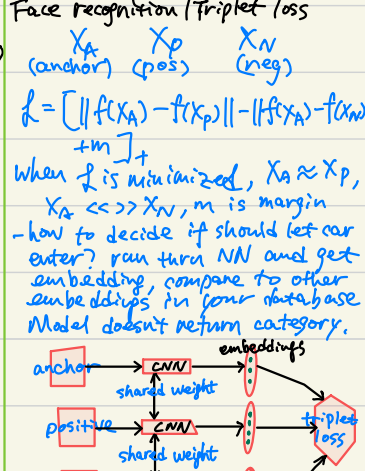 Face recognition / Triplet loss
X_A X_P X_N
(anchor) (pos) (neg)
L = [||f(X_A) - f(X_P)|| - ||f(X_A) - f(X_N)
+m]_+
When L is minimized, X_A ≈ X_P,
X_A << >> X_N, m is margin
- how to decide if should let car
enter? run thru NN and get
embedding, compare to other
embeddings in your database
Model doesn't return category.
embeddings
anchor CNN
shared weight
positive CNN
triplet
loss
shared weight